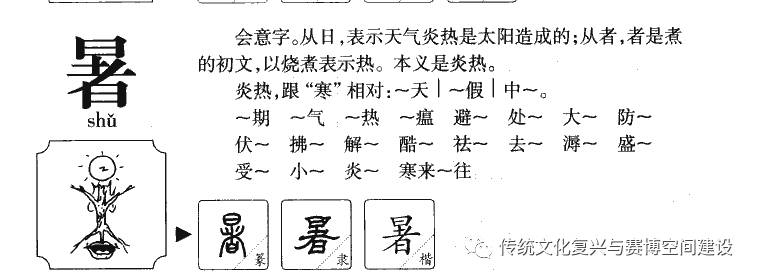 暑
shǔ
会意字。从日,表示天气炎热是太阳造成的;从者,者是煮
的初文,以烧煮表示热。本义是炎热。
炎热,跟“寒”相对:~天|~假|中~。
~期 ~气 ~热 ~瘟 避~ 处~ 大~ 防~
伏~ 拂~ 解~ 酷~ 祛~ 去~ 溽~ 盛~
受~ 小~ 炎~ 寒来~往
暑 篆 暑 隶 暑 楷
传统文化复兴与赛博空间建设